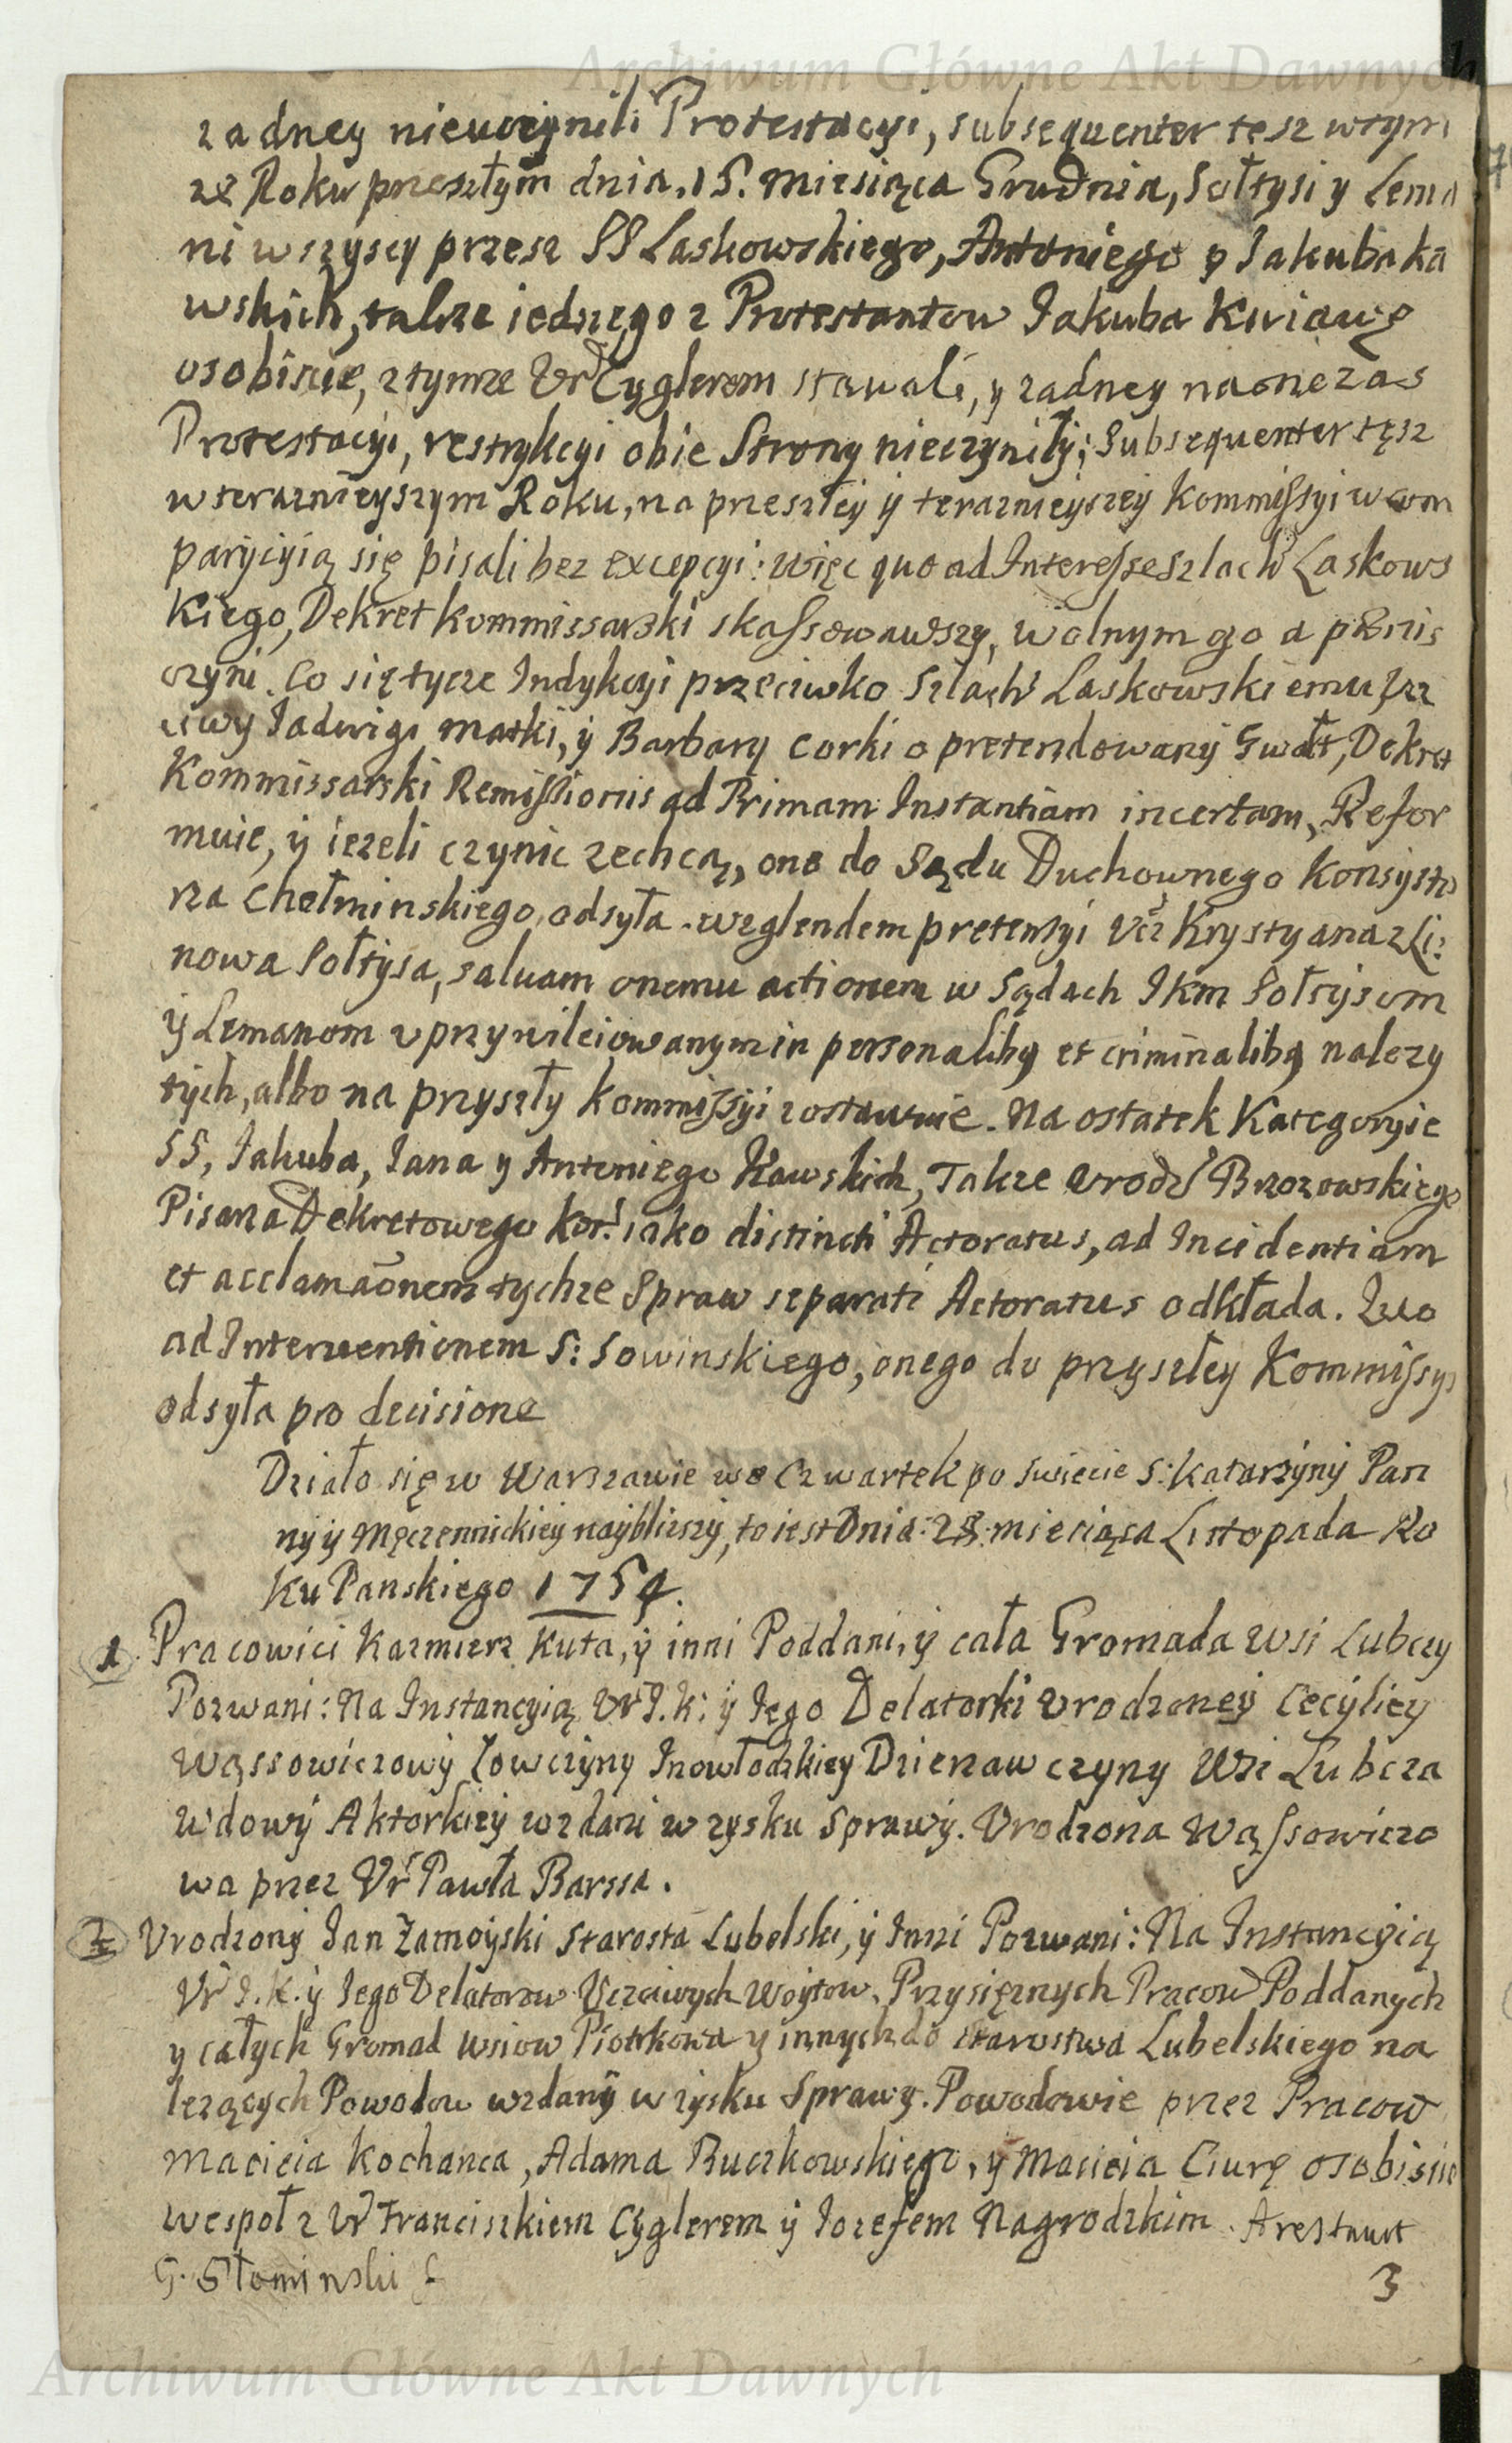 Archiwum Główne Akt Dawnych
zadney nieuczynili Protestacyi, subsequenter tesz wtym
ze Roku przeszłym dnia. 15. Miesiąca Grudnia, Sołtysi y Lema
ni wszyscy przesz SS Laskowskiego, Antoniego y Jakuba Ka
wskich, takze iednego z Protestantow Jakuba Kwiawę
osobiscie, ztymze Ur Cyglerem stawali, y zadney naonezas
Protestacyi, restrykcyi obie Strony nieczyniły; Subsequenter tesz
w teraznieyszym Roku, na przeszłey y teraznieyszey Kommissyi w com
parycyią się pisali bez excepcyi: więc quo ad Interesse Szlach Laskows
kiego, Dekret kommissarski skassowawszy, wolnym go a pœnis
czyni. Co się tycze Indykcyi przeciwko Szlach Laskowskiemu Ucz
ciwy Jadwigi matki, y Barbary corki o pretendowany Gwałt, Dekret
Kommissarski Remissionis ad Primam Instantiam incertam, Refor
muie, y iezeli czynic zechcą, one do Sądu Duchownego Konsysto
rza Chełminskiego odsyła. wzglendem pretensyi Ucz Krystyana z Li:
nowa Sołtysa, saluam onemu actionem w Sądach JKm Sołtysom
y Lemanom uprzywileiowanym in personalibq et criminalibq nalezy
tych, albo na przyszły kommissyi zostawuie. Na ostatek Kategoryie
SS, Jakuba, Jana y Antoniego Kawskich, Takze Urodz Brzozowskiego
Pisarza Dekretowego Kor: iako distincti Actoratus, ad Incidentiam
et acclamaõnem tychze Spraw separati Actoratus odkłada. Quo
ad Interuentionem S: Sowinskiego, onego do przyszłey Kommissyi
odsyła pro decisione
Działo się w Warszawie we Czwartek po swiecie S: Katarzyny Pan
ny y Męczennickiey nayblizszy, to iest Dnia: 28: miesiąca Listopada Ro
ku Panskiego 1754.
1. Pracowici Kazmierz Kuta, y inni Poddani, y cała Gromada wsi Lubczy
Pozwani: Na Instancyią Ur J.K: y Jego Delatorki Urodzoney Cecyliey
Wąssowiczowy Łowczyny Inowłodzkiey Dzierzawczyny Wsi Lubcza
Wdowy Aktorkiey wzdani w zysku Sprawy. Urodzona Wąssowiczo
wa przez Ur Pawła Barssa.
2 Urodzony Jan Zamoyski Starosta Lubelski, y Inni Pozwani: Na Instancyią
Ur J.K. y Jego Delatorow Uczciwych Woytow, Przysięznych Pracow Poddanych
y całych Gromad Wsiow Piotrkowa y innych do Starostwa Lubelskiego na
lezących Powodow wzdany w zysku Sprawy. Powodowie przez Pracow
Macieia Kochanca, Adama Ruczkowskiego, y Macieia Ciurę osobiscie
wespoł z Ur Franciszkiem Cyglerem y Jozefem Nagrodzkim. Arestant
G. Słominski
3
Archiwum Główne Akt Dawnych